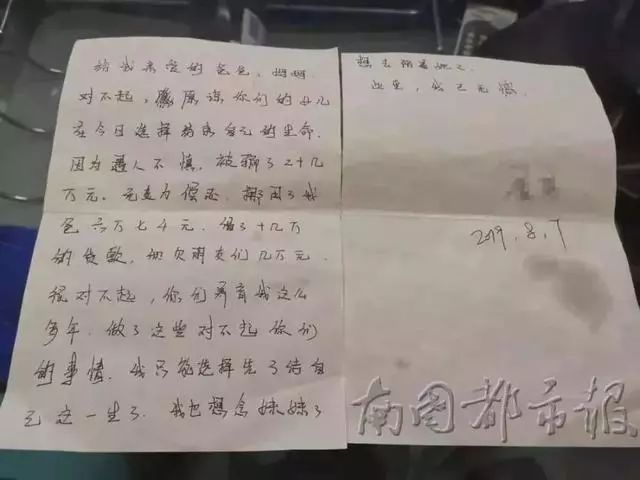 给我亲爱的爸爸、妈妈
对不起，原谅你们的女儿
在今日选择结束自己的生命
因为遇人不慎，被骗了二十几
万元。无力偿还，挪用了我
爸六万七千元，借了十几万
的贷款，他欠朋友们几万元
很对不起，你们养育我这么
多年，做了这些对不起你们
的事情，我只能选择先了结自
己这一生了，我也想念妹妹了
想去陪着她了
此生，我已无憾
2019.8.7
南国都市报